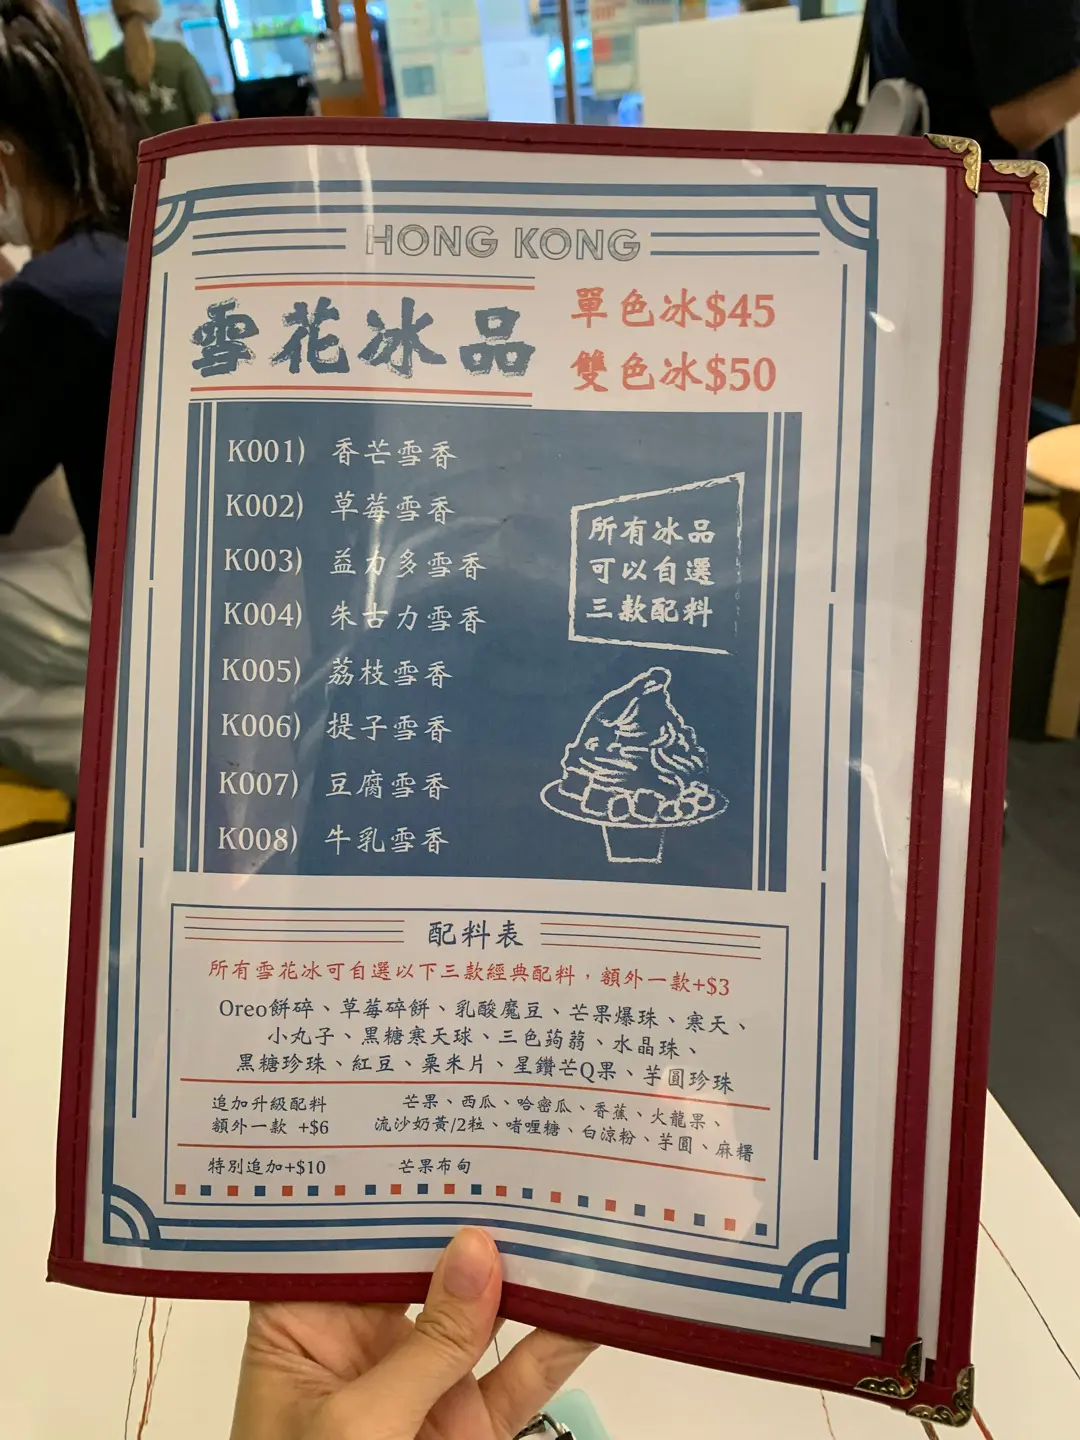 HONG KONG
雪花冰品
單色冰$45
雙色冰$50
K001) 香芒雪香
K002) 草莓雪香
K003) 益力多雪香
K004) 朱古力雪香
K005) 荔枝雪香
K006) 提子雪香
K007) 豆腐雪香
K008) 牛乳雪香
所有冰品
可以自選
三款配料
配料表
所有雪花冰可自選以下三款經典配料，額外一款+$3
Oreo餅碎、草莓碎餅、乳酸魔豆、芒果爆珠、寒天、
小丸子、黑糖寒天球、三色蒟蒻、水晶珠、
黑糖珍珠、紅豆、粟米片、星鑽芒Q果、芋圓珍珠
追加升級配料
額外一款 +$6
芒果、西瓜、哈密瓜、香蕉、火龍果、
流沙奶黃/2粒、啫喱糖、白涼粉、芋圓、麻糬
特別追加+$10 芒果布甸